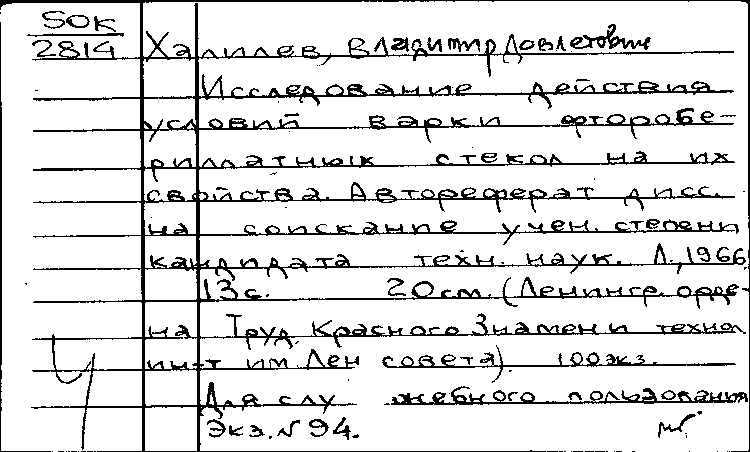 SOK
2814
Халилев, Владимир Довлетович
Исследование действия
условий варки фторобе-
риллатных стекол на их
свойства. Автореферат дисс.
на соискание учен. степени
кандидата техн. наук. Л., 1966
13с. 20см. (Ленингр. орде-
на Труд. Красного Знамени технол
ин-т им Лен совета). 100экз.
Для слу жебного пользования
Экз. № 94.